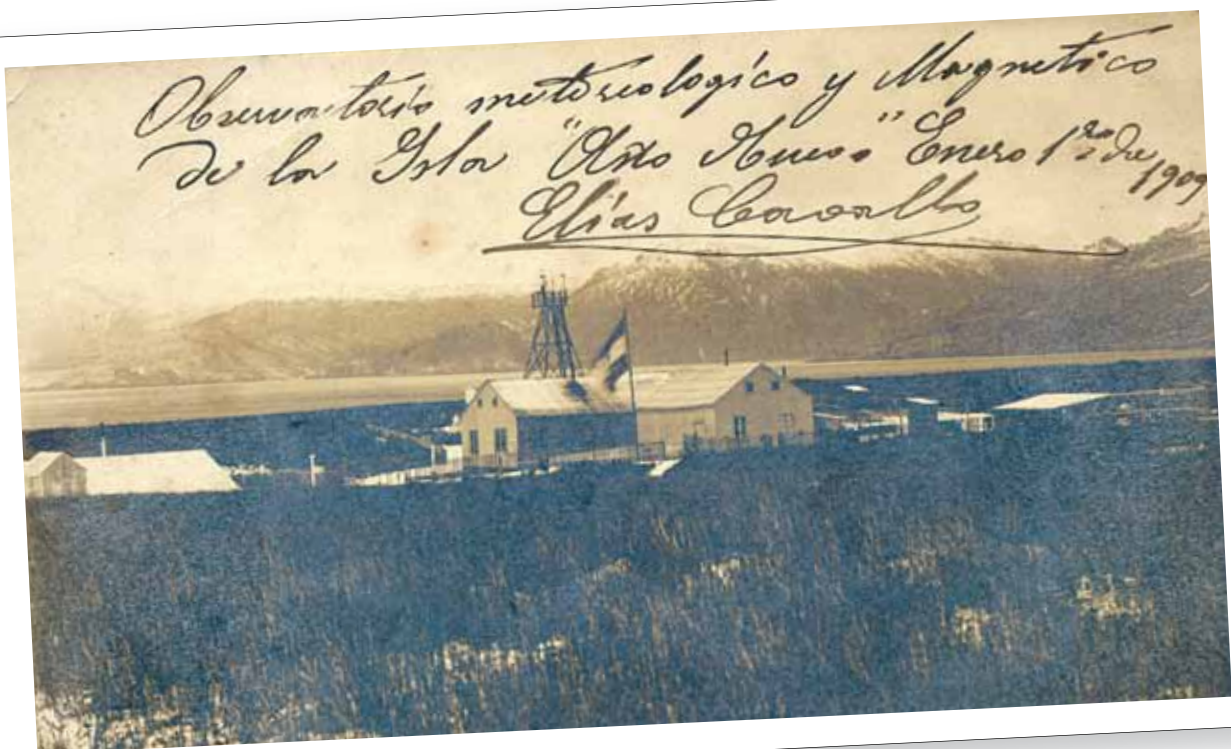 Observatorio metereologico y Magnetico
de la Isla "Año Nuevo" Enero 1ro de 1909
Elías